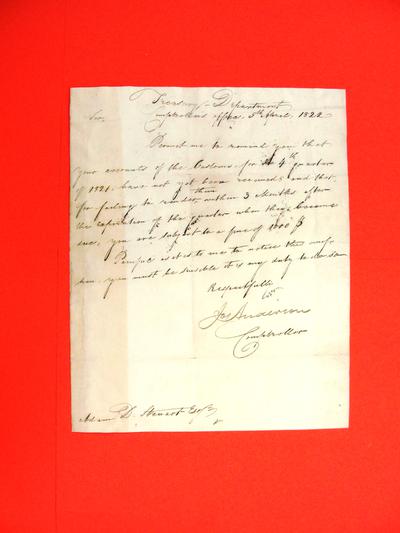 Treasury Department
Comptrollers office, 5th April, 1822
Sir,
Permit me to remind you that
your accounts of the Customs for the 4th quarter
of 1821, have not yet been received; and that
for failing to render them within 3 Months after
the expiration of the quarter when they become
due, you are subject to a fine of 1000 $
as it is to me to notice this
you must be sensible it is my duty to
Respectfully
Jos Anderson
Comptroller
Adam D. Stewart Esqr